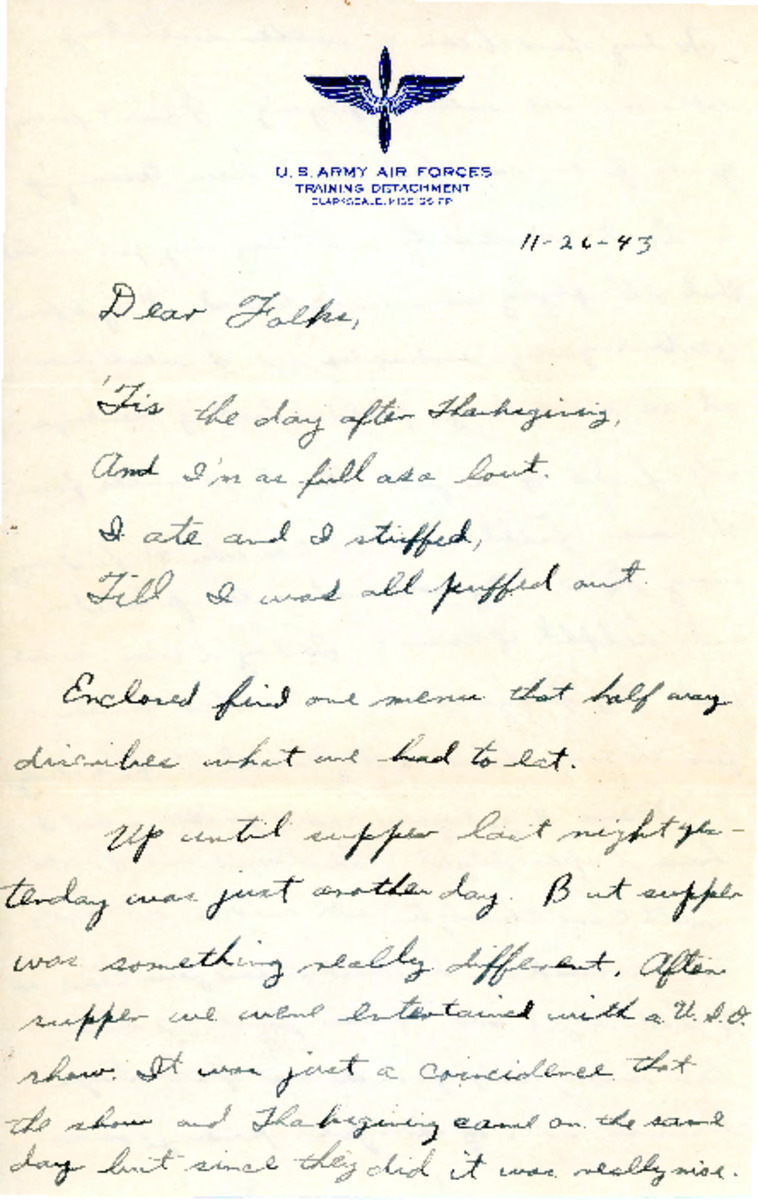 U.S. ARMY AIR FORCES
TRAINING DETACHMENT
CLARKSDALE, MISSISSIPPI
11-26-43
Dear Folks,
'Tis the day after Thanksgiving,
And I'm as full as a lout.
I ate and I stuffed,
Till I was all puffed out.
Enclosed find one menu that half way
discribes what we had to eat.
Up until supper last night yes-
terday was just another day. But supper
was something really different. After
supper we were entertained with a U.S.O.
show. It was just a coincidence that
the show and Thanksgiving came on the same
day but since they did it was really nice.